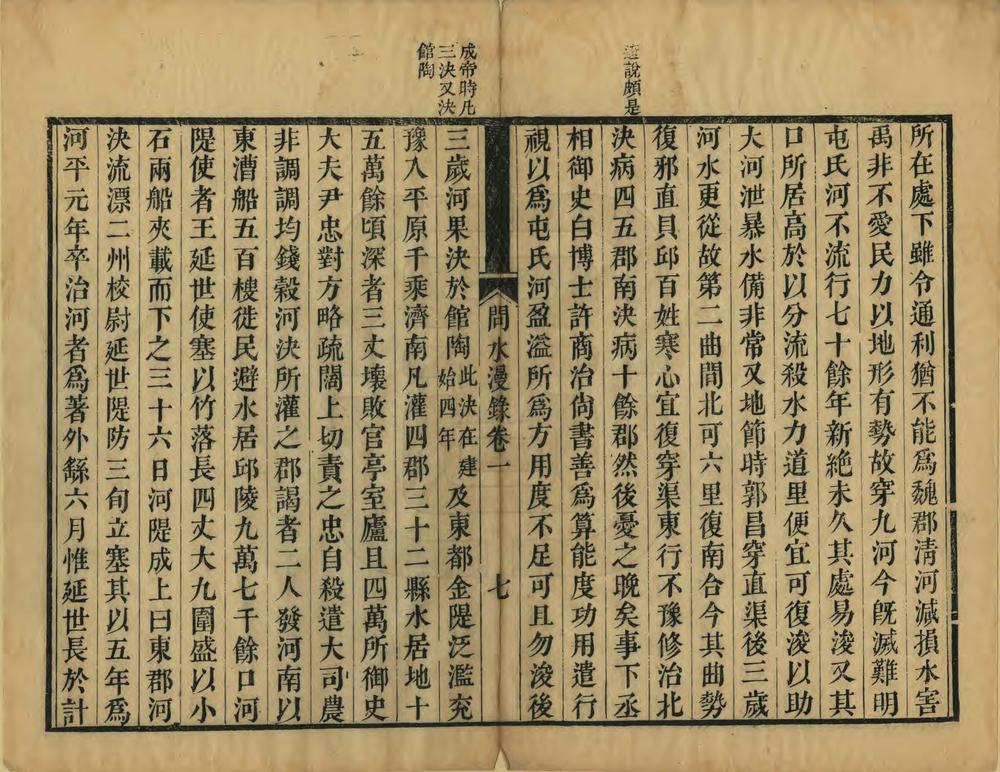 遵說頗是
所在處下雖令通利猶不能為魏郡清河減損水害
禹非不愛民力以地形有勢故穿九河今既滅難明
屯氏河不流行七十餘年新絕未久其處易浚又其
口所居高於以分流殺水力道里便宜可復浚以助
大河泄暴水備非常又地節時郭昌穿直渠後三歲
河水更從故第二曲間北可六里復南合今其曲勢
復邪直貝邱百姓寒心宜復穿渠東行不豫修治北
決病四五郡南決病十餘郡然後憂之晚矣事下丞
相御史白博士許商治尙書善為算能度功用遣行
視以為屯氏河盈溢所為方用度不足可且勿浚後
問水漫錄卷一
七
成帝時凡
三決又決
館陶
三歲河果決於館陶此決在建始四年及東都金隄泛濫兖
豫入平原千乘濟南凡灌四郡三十二縣水居地十
五萬餘頃深者三丈壞敗官亭室廬且四萬所御史
大夫尹忠對方略疏闊上切責之忠自殺遣大司農
非調調均錢穀河決所灌之郡謁者二人發河南以
東漕船五百㮴徙民避水居邱陵九萬七千餘口河
隄使者王延世使塞以竹落長四丈大九圍盛以小
石兩船夾載而下之三十六日河隄成上曰東郡河
決流漂二州校尉延世隄防三旬立塞其以五年為
河平元年卒治河者為著外繇六月惟延世長於計